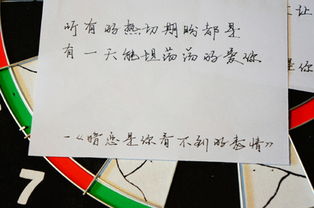 所有的热切期盼都是
有一天能坦荡荡的爱你
－《暗恋是你看不到的表情》
让
7